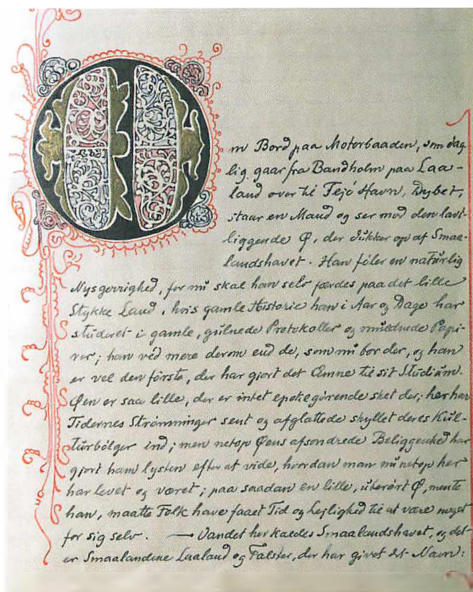 Om Bord paa Motorbaaden, som dag-
lig gaar fra Bandholm paa Laa-
land over til Fejö Havn, Dybet,
staar en Mand og ser mod den lavt-
liggende Ø, der dukker op af Smaa-
landshavet. Han föler en naturlig
Nysgerrighed, for nu skal han selv færdes paa det lille
Stykke Land, hvis gamle Historie han i Aar og Dage har
studeret i gamle, gulnede Protokoller og muldnede Papi-
rer; han véd mere derom end de, som nu bor der, og han
er vel den förste, der har gjort det Emne til sit Studium.
Øen er saa lille, der er intet epokegörende sket der; her har
Tidernes Strømninger sent og afglattede skyllet deres Kul-
turbölger ind; men netop Øens afsondrede Beliggenhed har
gjort ham lysten efter at vide, hvordan man nu netop her
har levet og været; paa saadan en lille, uberört Ø, mente
han, maatte Folk have faaet Tid og Lejlighed til at være meget
for sig selv. — Vandet her kaldes Smaalandshavet, og det
er Smaalandene Laaland og Falster, der har givet det Navn: